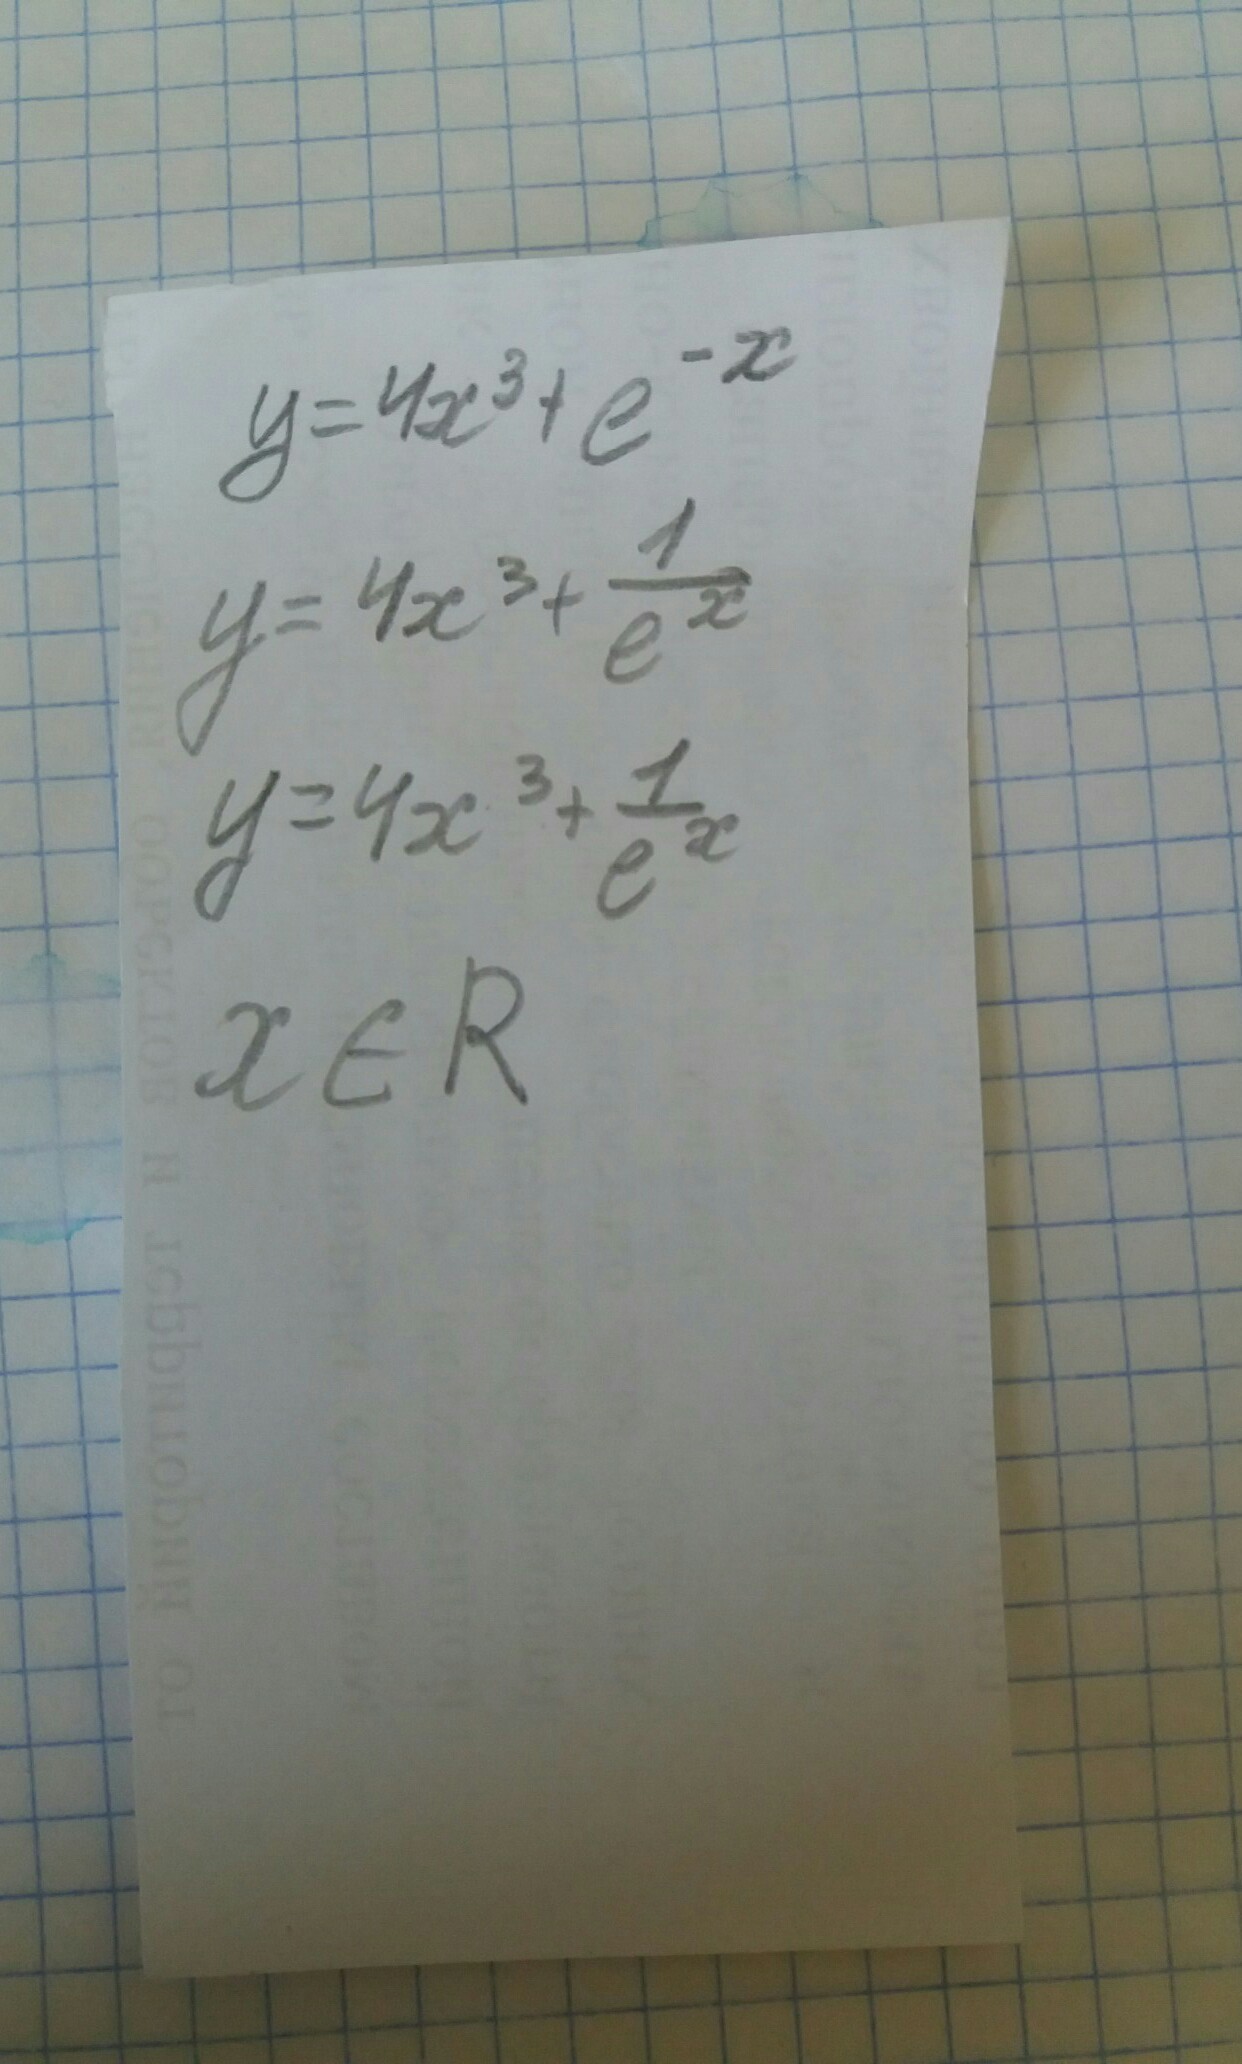 y = 4x³ + e⁻ˣ
y = 4x³ + 1/eˣ
y = 4x³ + 1/eˣ
x ∈ R